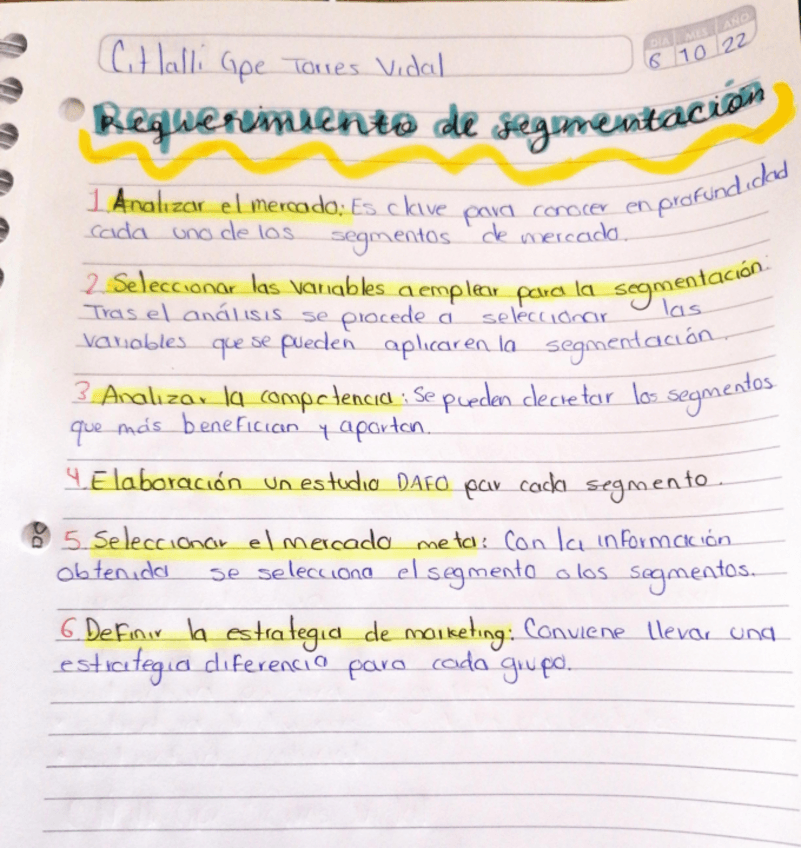 Citlalli Gpe Torres Vidal
DIA MES AÑO
6 10 22
Requerimiento de segmentación
1. Analizar el mercado: Es clave para conocer en profundidad
cada uno de los segmentos de mercado.
2. Seleccionar las variables a emplear para la segmentación:
Tras el análisis se procede a seleccionar las
variables que se pueden aplicar en la segmentación.
3. Analizar la competencia: Se pueden decretar los segmentos
que más benefician y aportan.
4. Elaboración un estudio DAFO par cada segmento.
5. Seleccionar el mercado meta: Con la información
obtenida se selecciona el segmento o los segmentos.
6. Definir la estrategia de marketing: Conviene llevar una
estrategia diferencia para cada grupo.